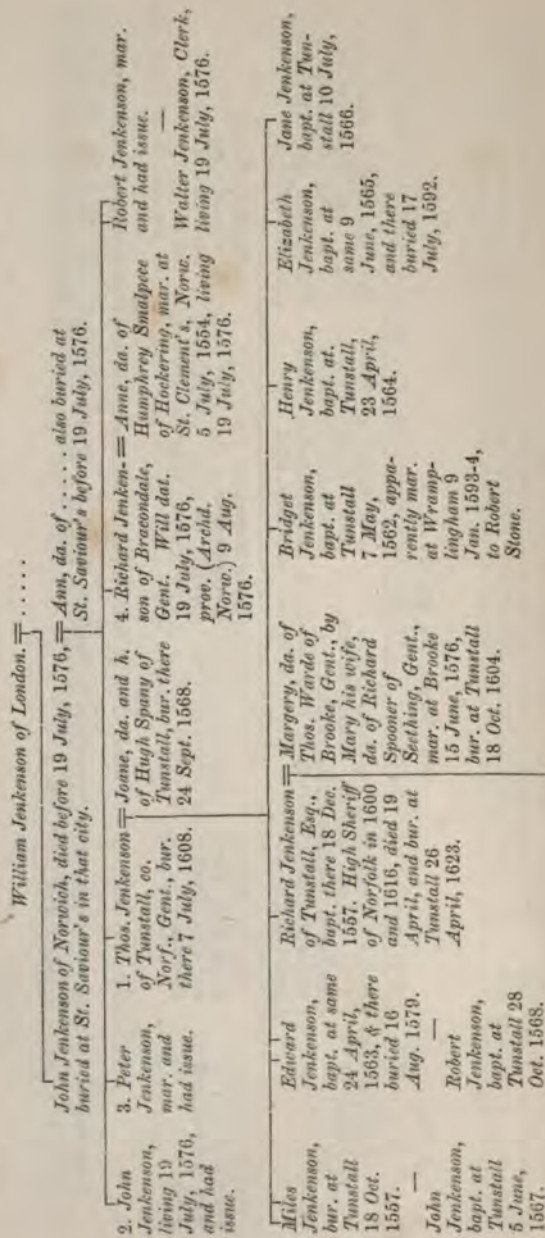 William Jenkenson of London. = . . . . .
John Jenkenson of Norwich, died before 19 July, 1576,
buried at St. Saviour's in that city.
= Ann, da. of . . . . . also buried at
St. Saviour's before 19 July, 1576.
2. John
Jenkenson,
living 19
July, 1576,
and had
issue.
3. Peter
Jenkenson,
mar. and
had issue.
1. Thos. Jenkenson
of Tunstall, co.
Norf., Gent., bur.
there 7 July, 1608.
= Joane, da. and h.
of Hugh Spany of
Tunstall, bur. there
24 Sept. 1568.
4. Richard Jenken-
son of Bracondale,
Gent. Will dat.
19 July, 1576,
prov. (Archd.
Norw.) 9 Aug.
1576.
= Anne, da. of
Humphrey Smalpece
of Hockering, mar. at
St. Clement's, Norw.
5 July, 1554, living
19 July, 1576.
Robert Jenkenson, mar.
and had issue.
—
Walter Jenkenson, Clerk,
living 19 July, 1576.
Miles
Jenkenson,
bur. at
Tunstall
18 Oct.
1557.
—
John
Jenkenson,
bapt. at
Tunstall
5 June,
1567.
Edward
Jenkenson,
bapt. at same
24 April,
1563, & there
buried 16
Aug. 1579.
—
Robert
Jenkenson,
bapt. at
Tunstall 28
Oct. 1568.
Richard Jenkenson
of Tunstall, Esq.,
bapt. there 18 Dec.
1557. High Sheriff
of Norfolk in 1600
and 1616, died 19
April, and bur. at
Tunstall 26
April, 1623.
= Margery, da. of
Thos. Warde of
Brooke, Gent., by
Mary his wife,
da. of Richard
Spooner of
Seething, Gent.,
mar. at Brooke
15 June, 1576,
bur. at Tunstall
18 Oct. 1604.
Bridget
Jenkenson,
bapt. at
Tunstall
7 May,
1562, appa-
rently mar.
at Wramp-
lingham 9
Jan. 1593-4,
to Robert
Stone.
Henry
Jenkenson,
bapt. at.
Tunstall,
23 April,
1564.
Elizabeth
Jenkenson,
bapt. at
same 9
June, 1565,
and there
buried 17
July, 1592.
Jane Jenkenson,
bapt. at Tun-
stall 10 July,
1566.